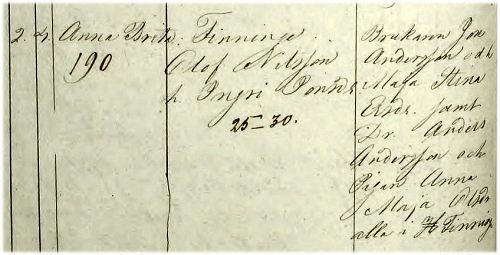 2. 4. Anna Brita.
190
Finninge
Olof Nilsson
h. Ingri Jonsdr
25-30.
Brukaren Jon
Andersson och
Maja Stina
Ersdr. samt
Dr. Anders
Andersson och
Pigan Anna
Maja Olsdr
alla i Finninge